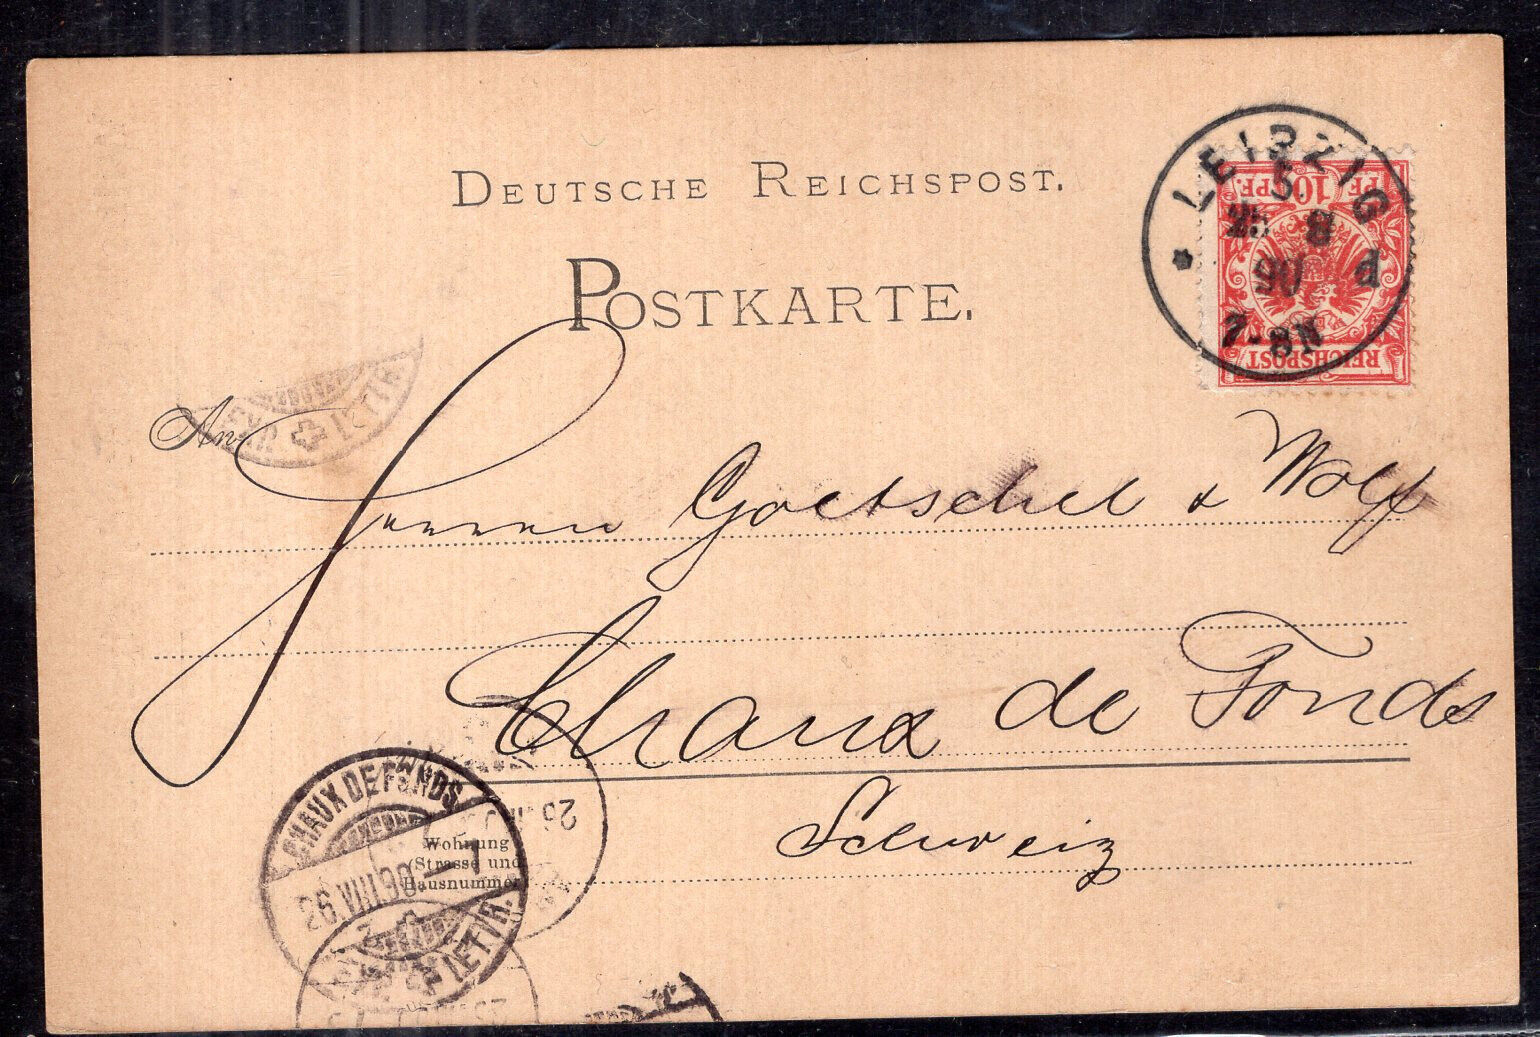 DEUTSCHE REICHSPOST.
POSTKARTE.
LEIPZIG
5
25 8
90 d
7-8N
10 PF. PF.
REICHSPOST
An
Herren Goetschel & Wolff
Chaux de Fonds
Schweiz
Wohnung
(Strasse und
Hausnummer
CHAUX DE FONDS
26.VIII.90—7
LETTR.
LETTR.
26